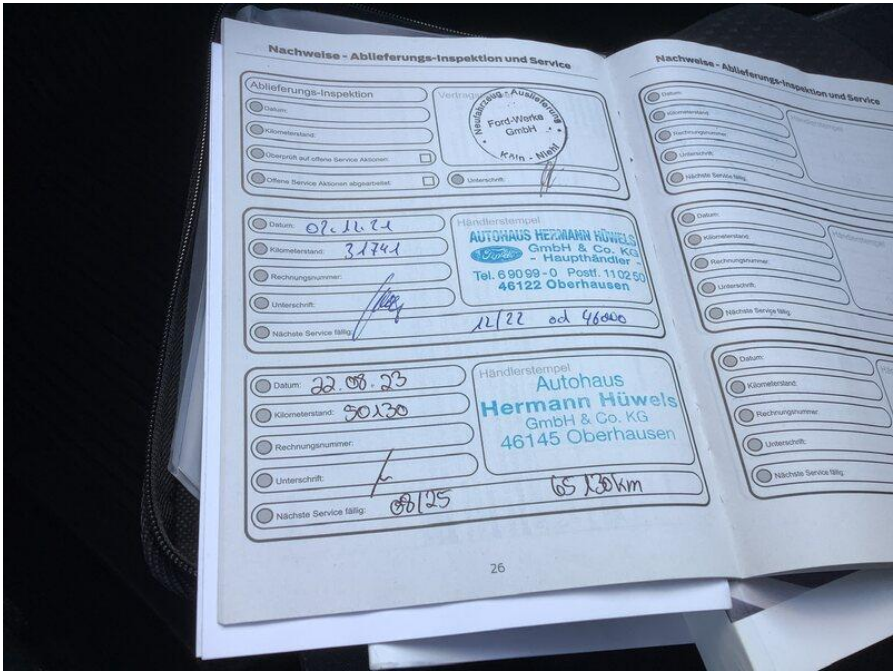 Nachweise - Ablieferungs-Inspektion und Service
Ablieferungs-Inspektion
Datum:
Kilometerstand:
Überprüft auf offene Service Aktionen:
Offene Service Aktionen abgearbeitet:
Neufahrzeug - Auslieferung
Ford-Werke
GmbH
Köln - Niehl
Unterschrift:
Datum: 02.11.21
Kilometerstand: 31741
Rechnungsnummer:
Unterschrift:
Nächste Service fällig: 12/22 od 46000
Händlerstempel
AUTOHAUS HERMANN HÜWELS
Ford
GmbH & Co. KG
- Haupthändler -
Tel. 6 90 99 - 0 Postf. 11 02 50
46122 Oberhausen
Datum: 22.08.23
Kilometerstand: 50130
Rechnungsnummer:
Unterschrift:
Nächste Service fällig: 08/25 65 130km
Händlerstempel
Autohaus
Hermann Hüwels
GmbH & Co. KG
46145 Oberhausen
26
Nachweise - Ablieferungs-Inspektion und Service
Datum:
Kilometerstand:
Rechnungsnummer:
Unterschrift:
Nächste Service fällig:
Händlerstempel
Datum:
Kilometerstand:
Rechnungsnummer:
Unterschrift:
Nächste Service fällig:
Händlerstempel
Datum:
Kilometerstand:
Rechnungsnummer:
Unterschrift:
Nächste Service fällig: